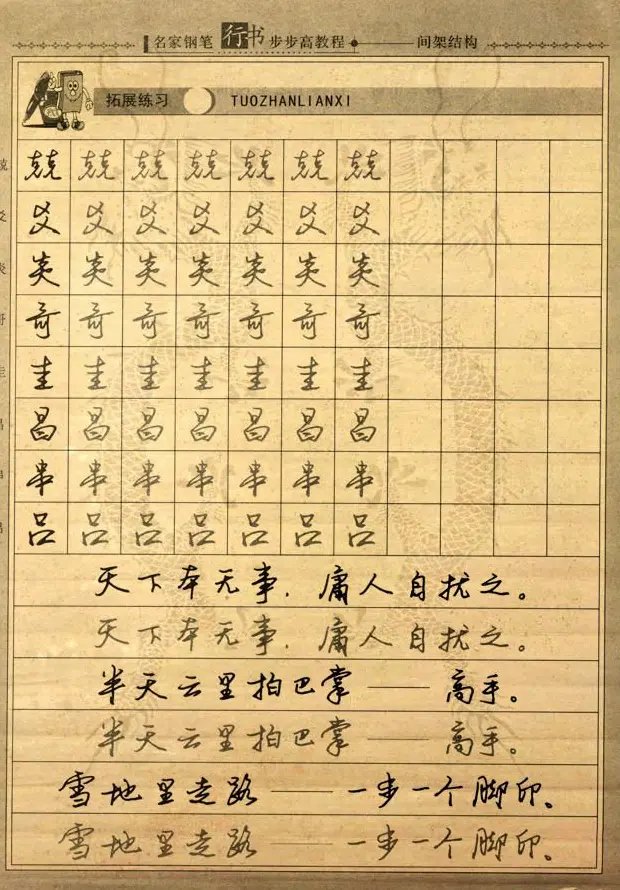 名家钢笔行书步步高教程 间架结构
拓展练习 TUOZHANLIANXI
兢 兢 兢 兢 兢 兢 兢
爻 爻 爻 爻 爻 爻 爻
炎 炎 炎 炎 炎 炎 炎
哥 哥 哥 哥 哥 哥 哥
圭 圭 圭 圭 圭 圭 圭
昌 昌 昌 昌 昌 昌 昌
串 串 串 串 串 串 串
吕 吕 吕 吕 吕 吕 吕
天下本无事，庸人自扰之。
天下本无事，庸人自扰之。
半天云里拍巴掌——高手。
半天云里拍巴掌——高手。
雪地里走路——一步一个脚印。
雪地里走路——一步一个脚印。